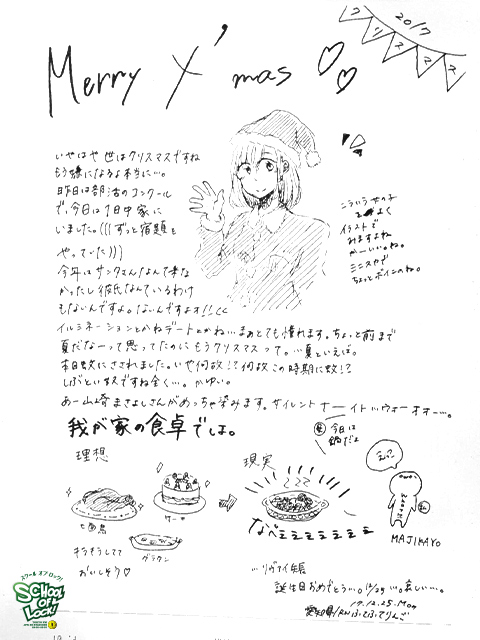 2017
クリスマス
Merry X'mas ♡♡
いやはや世はクリスマスですね
もう嫌になるよ本当に…。
昨日は部活のコンクール
で、今日は1日中家に
いました。(((ずっと宿題を
やっていた)))
今年はサンタさんなんて来な
かったし彼氏なんているわけ
もないんですよ。ないんですよ!!くく
イルミネーションとかねデートとかね…まぁとても憧れます。ちょっと前まで
夏だなーって思ってたのにもうクリスマスって。…夏といえば。
本日蚊にさされました。いや何故!?何故この時期に蚊!?
しぶといヤスですね全く…。かゆい。
あー山崎まさよしさんがめっちゃ染みます。サイレントナーイト…ウォーオオー…。
こういう女の子
よく
イラストで
みますよね
かーいいね。
ミニスカで
ちょっとボインのね。
我が家の食卓でしょ。
理想
七面鳥
ケーキ
グラタン
キラキラしてて
おいしそう♡
現実
今日は
鍋だよ
なべェェェェェェェ
えっ?
MAJIKAYO
誕生日おめでとう…。12/29…。哀しい…。
17.12.25.Mon
愛知県/RNふてふてりんご
スクールオブロック!
SCHOOL OF LOCK!